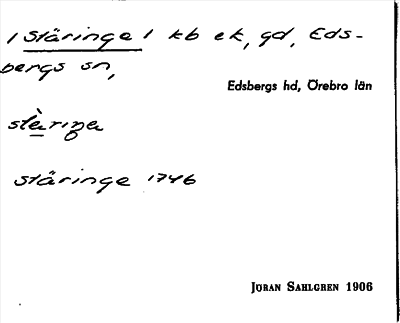 / Stäringe / kb ek, gd, Eds-
bergs sn,
Edsbergs hd, Örebro län
stàriŋa
stäringe 1746
Jöran Sahlgren 1906